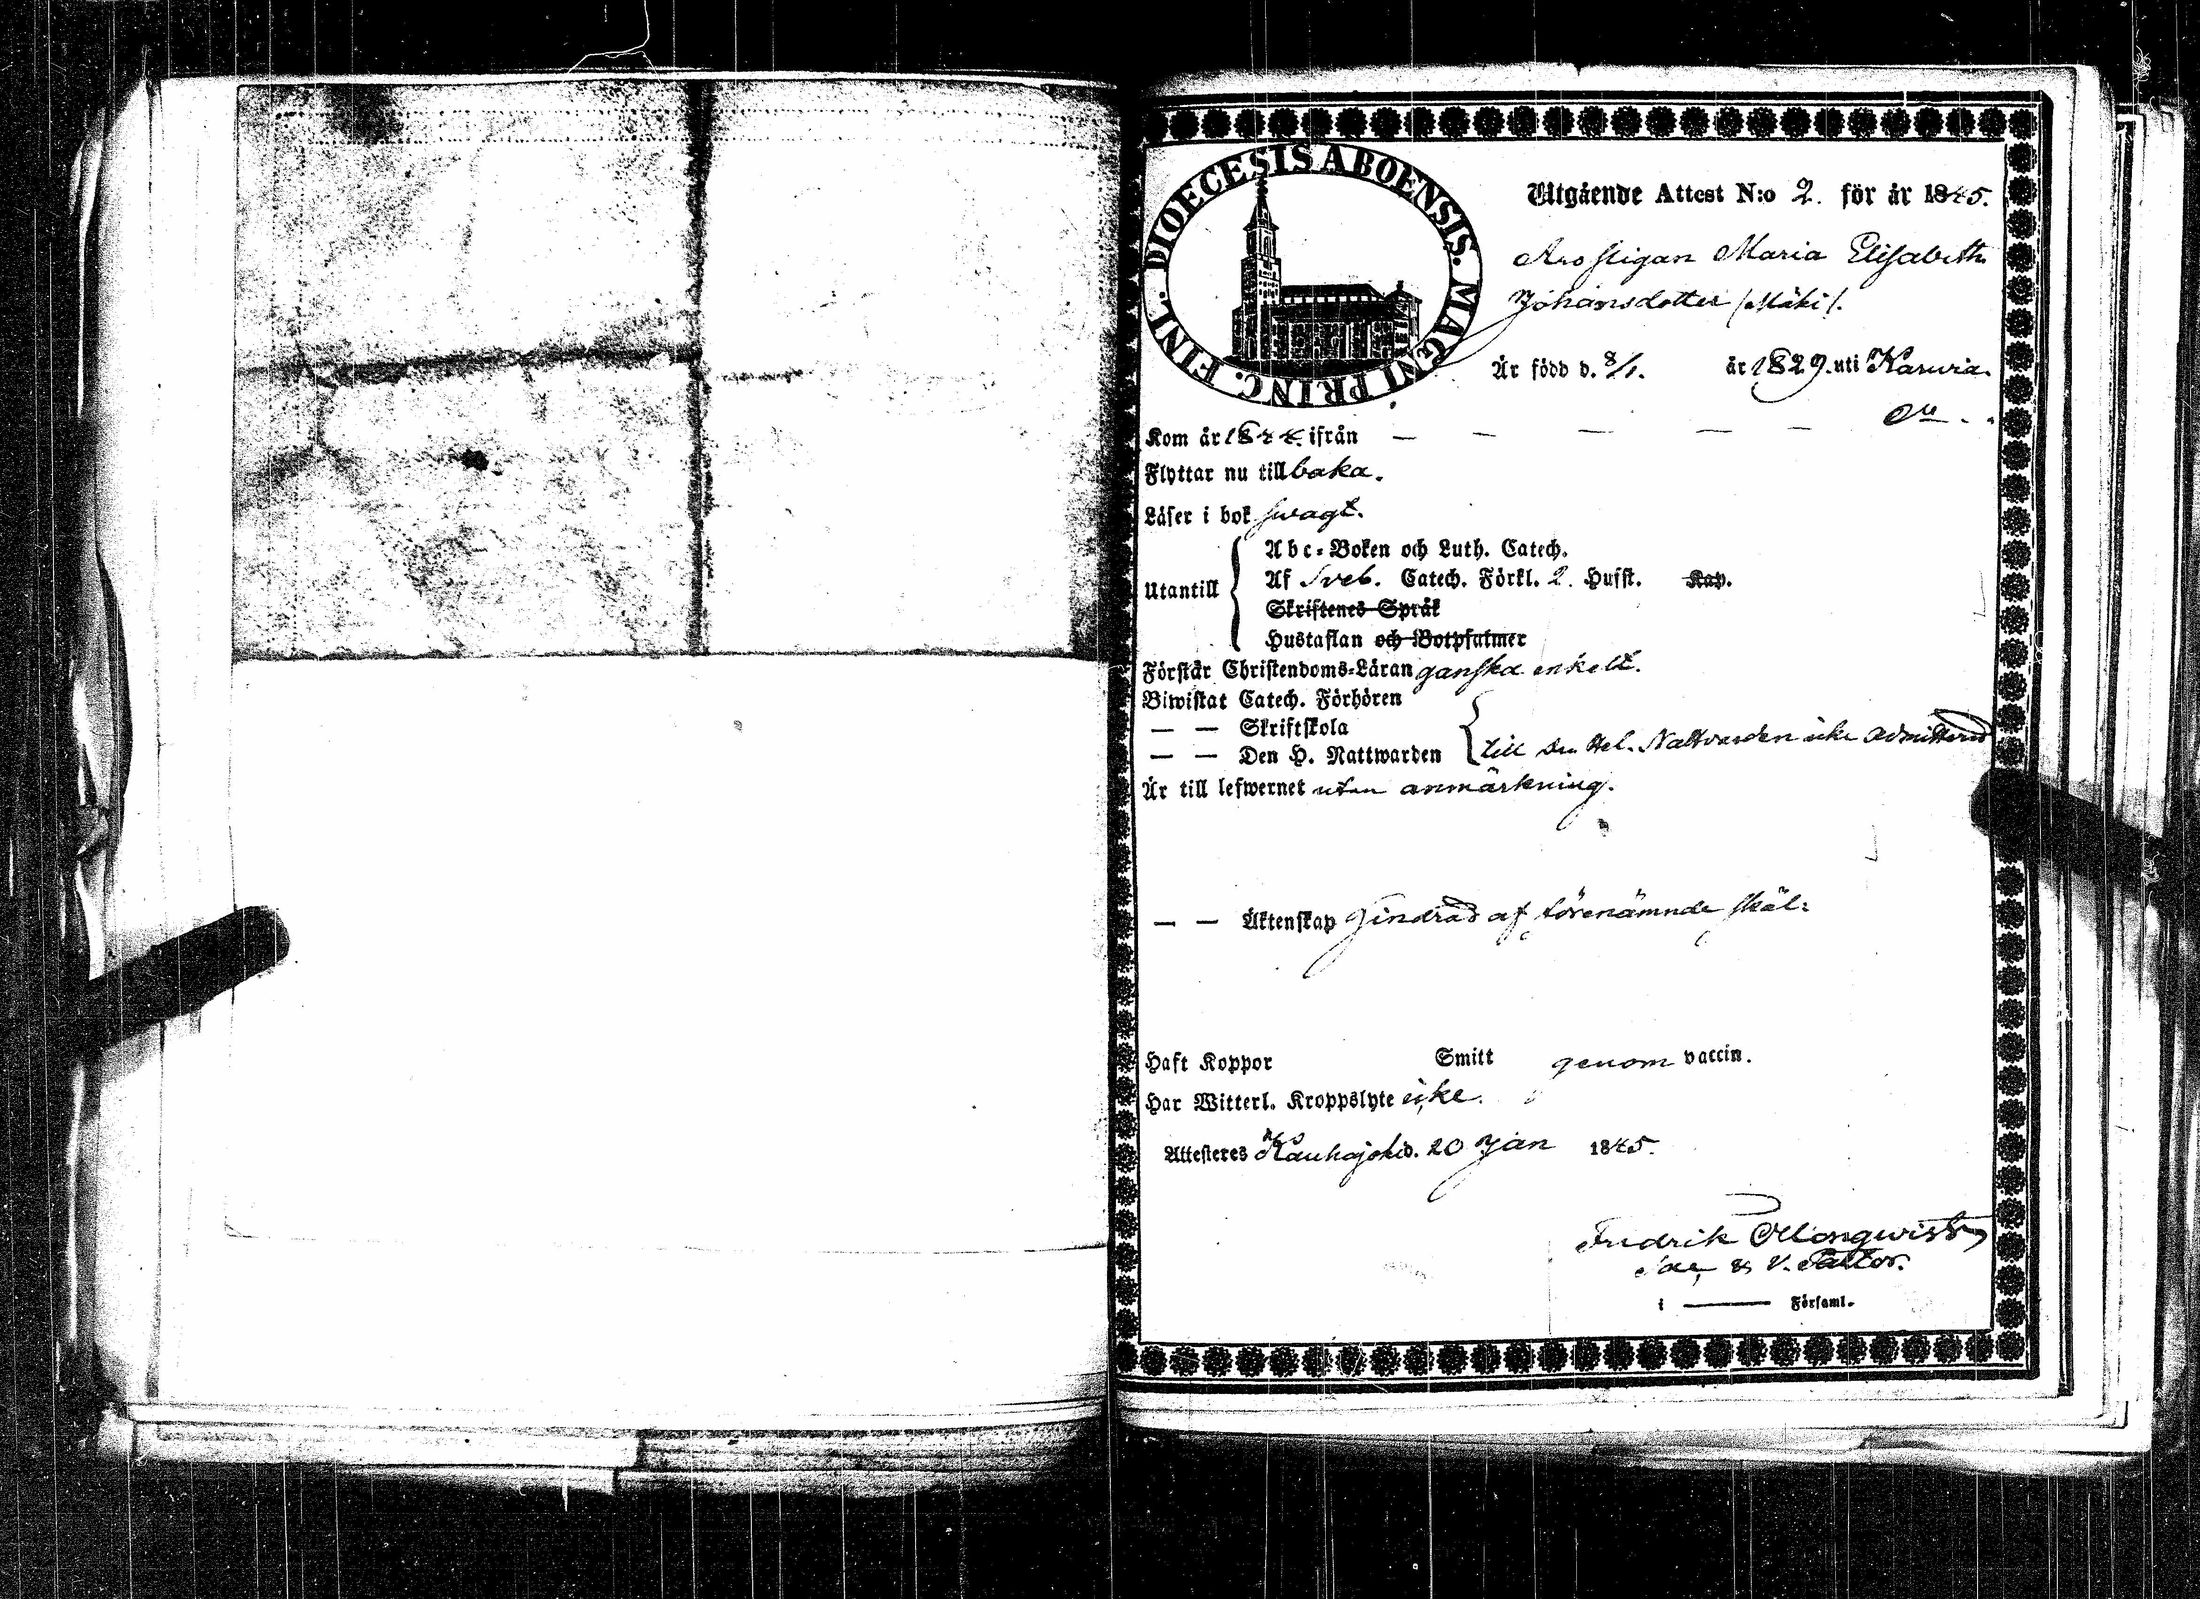 DIOECESIS ABOENSIS. MAGNI PRINC. FINL.
Utgående Attest N:o 2. för år 1845.
Maria Elisabeth
Johansdotter /Mäki/.
Är född d. 8/1. år 1829. uti Karvia.
Kom år 1844 ifrån — — — — — D:o
Flyttar nu tillbaka.
Läser i bok swagt.
Utantill
Abc-Boken och Luth. Catech.
Af Sveb. Catech. Förkl. 2. Hufst. Kap.
Skriftenes Språk
Hustaflan och Botpsalmer
Förstår Christendoms-Läran ganska enkelt.
Biwistat Catech. Förhören
— — Skriftskola
— — Den H. Nattwarden till den Hel. Nattvarden icke admitterad
Är till lefwernet utan anmärkning.
— — Äktenskap hindrad af förenämnde skäl:
Haft Koppor Smitt genom vaccin.
Har Witterl. Kroppslyte icke.
Attesteres Kauhajoki d. 20 Jan 1845.
Fredrik
Sac. & V. Pastor.
i ——— Församl.